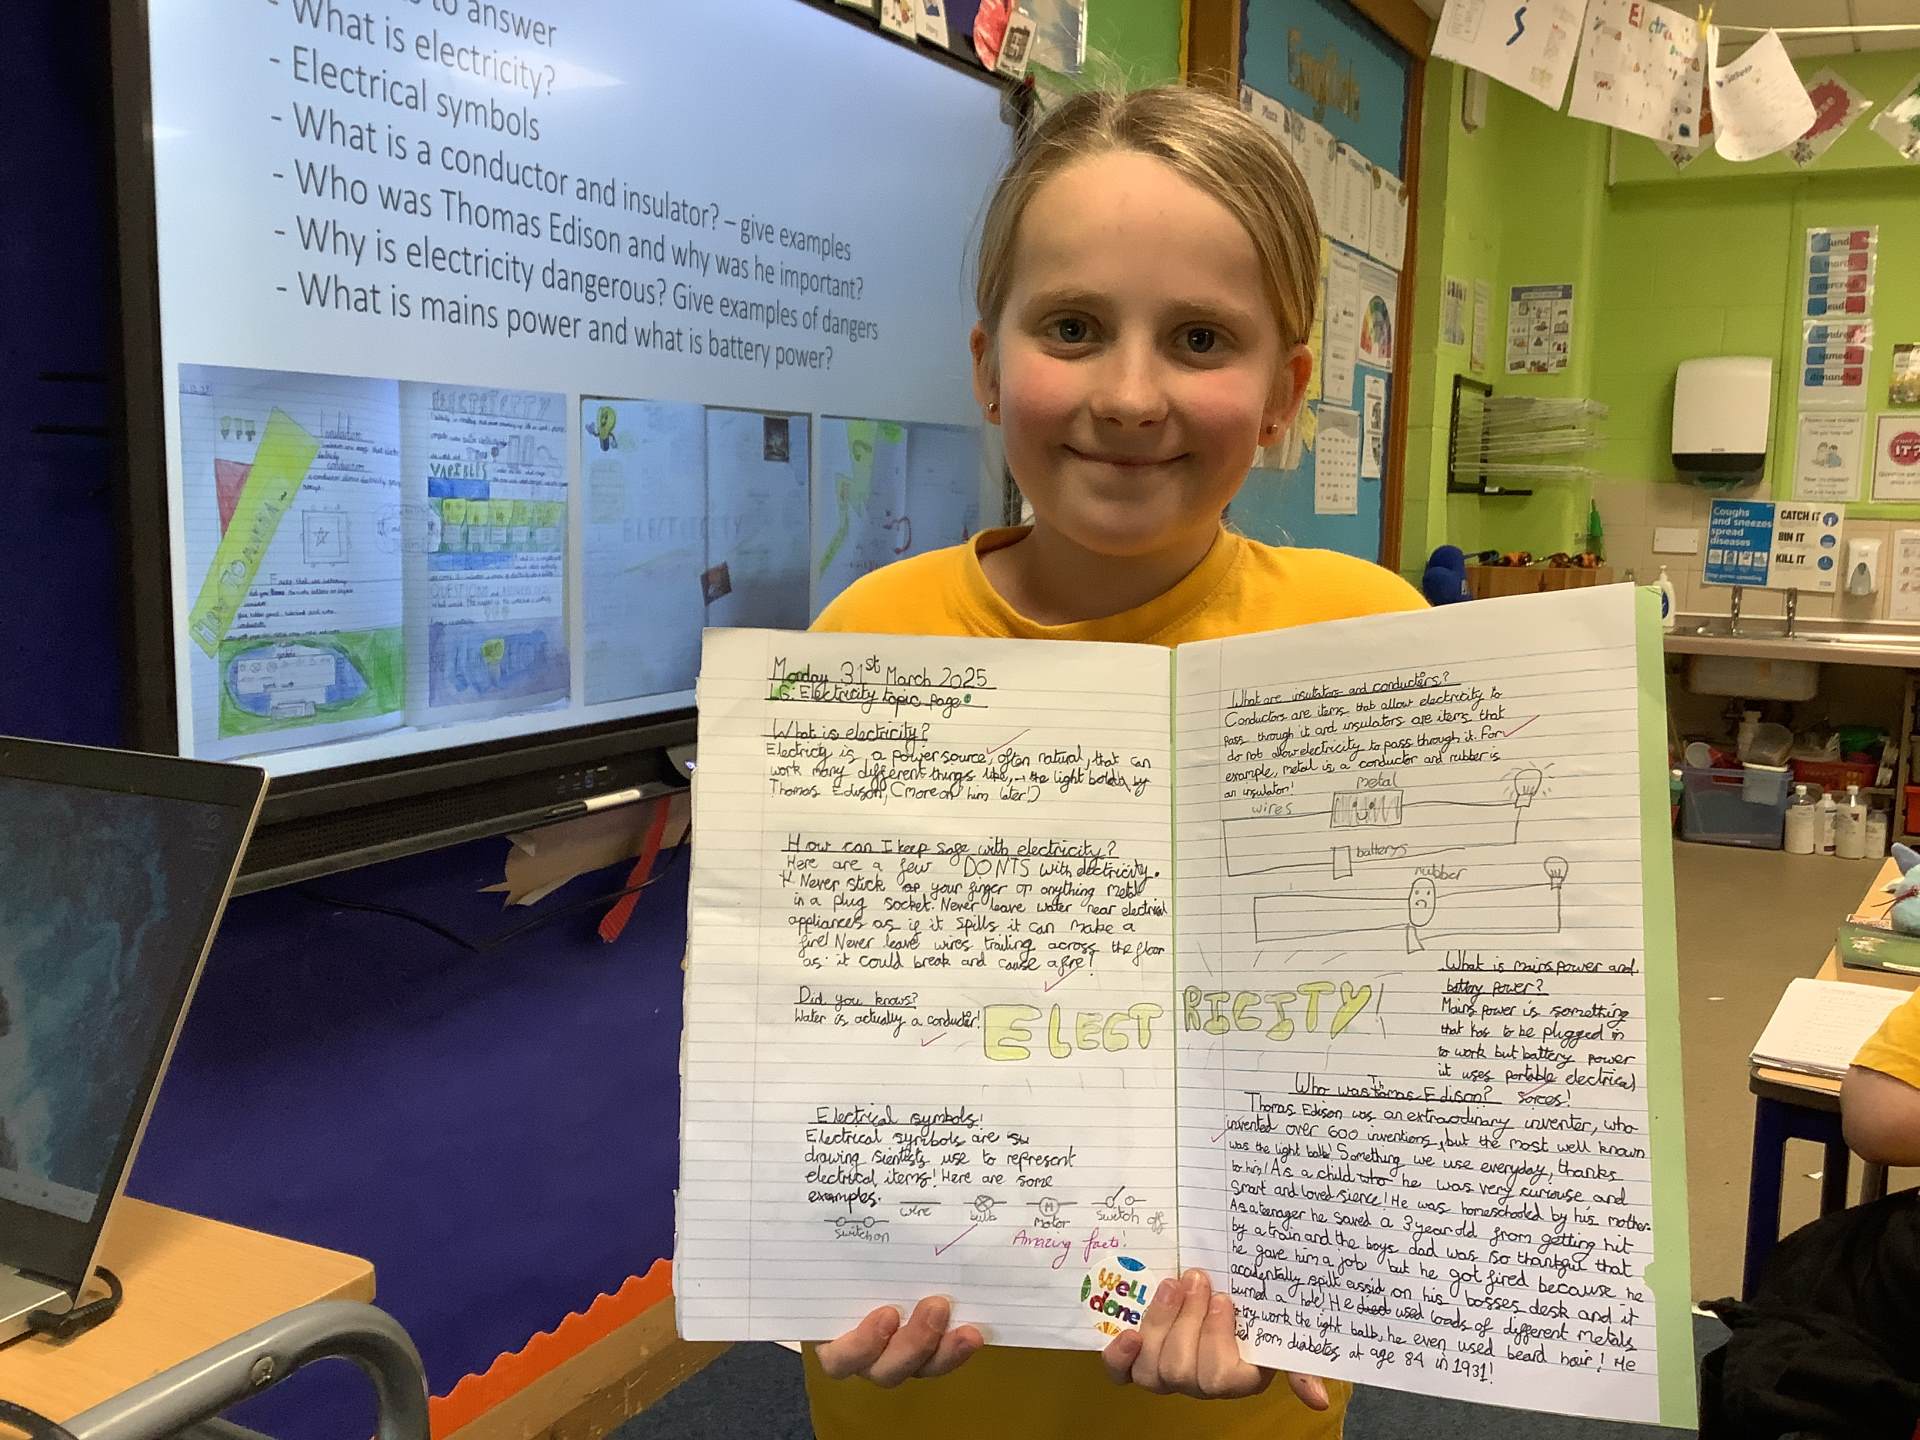 to answer
- What is electricity?
- Electrical symbols
- What is a conductor and insulator? – give examples
- Who was Thomas Edison and why was he important?
- Why is electricity dangerous? Give examples of dangers
- What is mains power and what is battery power?
Monday 31st March 2025
LG: Electricity topic page
What is electricity?
Electricty is a power source, often natural, that can
work many different things like, the light by
Thomas Edison, (more on him later!)
How can I keep safe with electricity?
Here are a few DONTS with electricity.
Never stick your finger or anything metal
in a plug socket. Never leave water near electrical
appliances as if it spills it can make a
fire! Never leave wires trailing across the floor
as it could break and cause a fire!
Did you know?
Water is actually a conducter!
ELECTRICITY!
Electrical symbols!
Electrical symbols are
drawing sientists use to represent
electrical items! Here are some
examples.
wire
bulb
M
motor
switch off
switch on
Amazing facts!
Well
done
What are insultators and conducters?
Conductors are items that allow electricity to
pass through it and insulators are items that
do not allow electricity to pass through it. For
example, metal is a conductor and rubber is
an insulator!
wires
metal
batterys
rubber
What is mains power and
battery power?
Mains power is something
that has to be plugged in
to work but battery power
it uses portable electrical
sorces!
Who was Thomas Edison?
Thomas Edison was an extraordinary inventer, who
invented over 600 inventions, but the most well known
was the light balb! Something we use everyday, thanks
to him! As a child who he was very curiouse and
smart and loved sience! He was homeschooled by his mother.
As a teenager he saved a 3 year old from getting hit
by a train and the boys dad was so thankful that
he gave him a job but he got fired because he
accidentally spilt assid on his bosses desk and it
burned a hole! He used loads of different metals
to try work the light balb, he even used beard hair! He
died from diabetes at age 84 in 1931!
lundi
mardi
mercredi
jeudi
vendredi
samedi
dimanche
Coughs
and sneezes
spread
diseases
CATCH IT
BIN IT
KILL IT